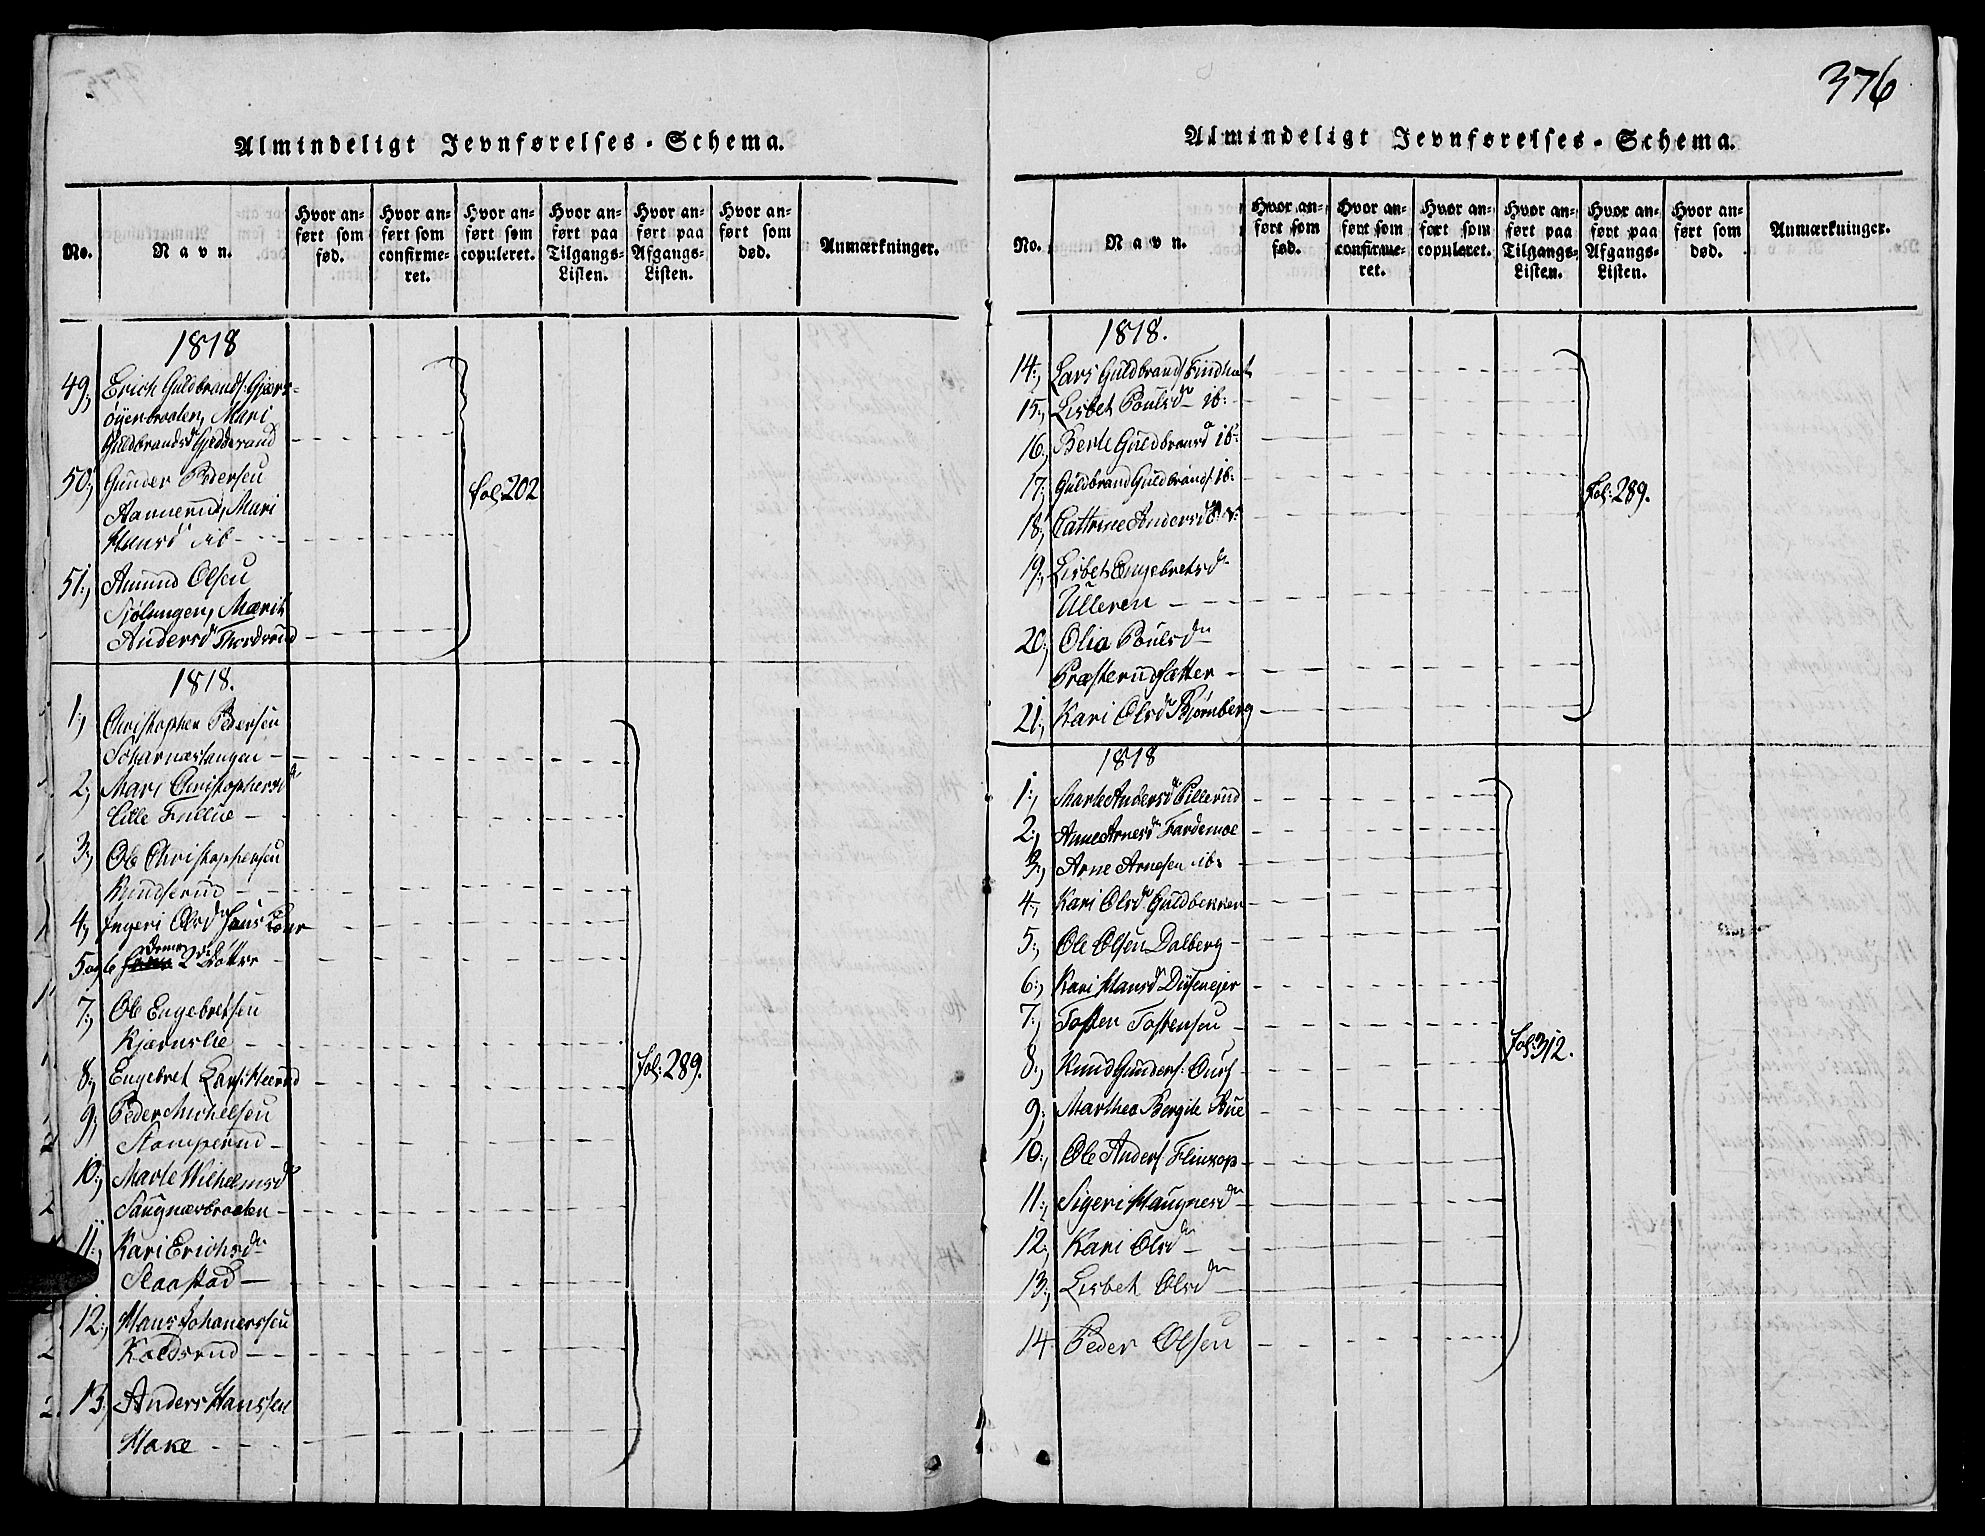 Almindeligt Jevnførelses-Schema.
No.
Navn.
Hvor an-
ført som
fød.
Hvor an-
ført som
confirme-
ret.
Hvor an-
ført som
copuleret.
Hvor an-
ført paa
Tilgangs-
Listen.
Hvor an-
ført paa
Afgangs-
Listen.
Hvor an-
ført som
død.
Anmærkninger.
1818
49, Erich Guldbrands. Gjærs-
øyenbraaten, Mari
Guldbrandsd
50, Gunder Pedersen
Aannerud, Mari
Hansd ib
51, Amund Olsen
Sjølungen, Marit
Andersd Thordsrud
fol: 202
1818.
1, Christopher Pedersen
Scharnæstangen
2, Mari Christophersd
Lille Frillue
3, Ole Christophersen
Knudserud
4, Ingeri Olsd
5 og 6 2de Døttre
7, Ole Engebretsen
Kjærnslie
8, Engebret Lars: Heerud
9, Peder Michelsen
Stomperud
10, Marte Wilhelmsd
Saugnæsbraaten
11, Kari Erichsd
Slaastad
12, Hans Johannessen
Koldsrud
13, Anders Hanssen
Hoke
fol: 289.
376
Almindeligt Jevnførelses-Schema.
No.
Navn.
Hvor an-
ført som
fød.
Hvor an-
ført som
confirme-
ret.
Hvor an-
ført som
copuleret.
Hvor an-
ført paa
Tilgangs-
Listen.
Hvor an-
ført paa
Afgangs-
Listen.
Hvor an-
ført som
død.
Anmærkninger.
1818.
14, Lars Guldbrands
15, Lisbet Poulsd ib:
16, Berte Guldbransd ib:
17, Guldbrand Guldbrands ib:
18, Cathrine Andersd
19, Lisbet Engebretsd
Ulleren
20, Olia Poulsd
Præsterudsætter
21, Kari Olsd Bjørnberg
fol: 289.
1818
1, Marte Andersd Pillerud
2, Anne Arnesd Fardemoe
3, Arne Arnesen ib:
4, Kari Olsd Guldbekken
5, Ole Olsen Dalberg
6, Kari Hansd Dysenejer
7, Tosten Tostensen
8, Knud Gunders:
9, Marthea Bergite Hue
10, Ole Anders Flinkop
11, Sigeri Haugnesd
12, Kari Olsd
13, Lisbet Olsd
14 Peder Olsen
fol: 312.